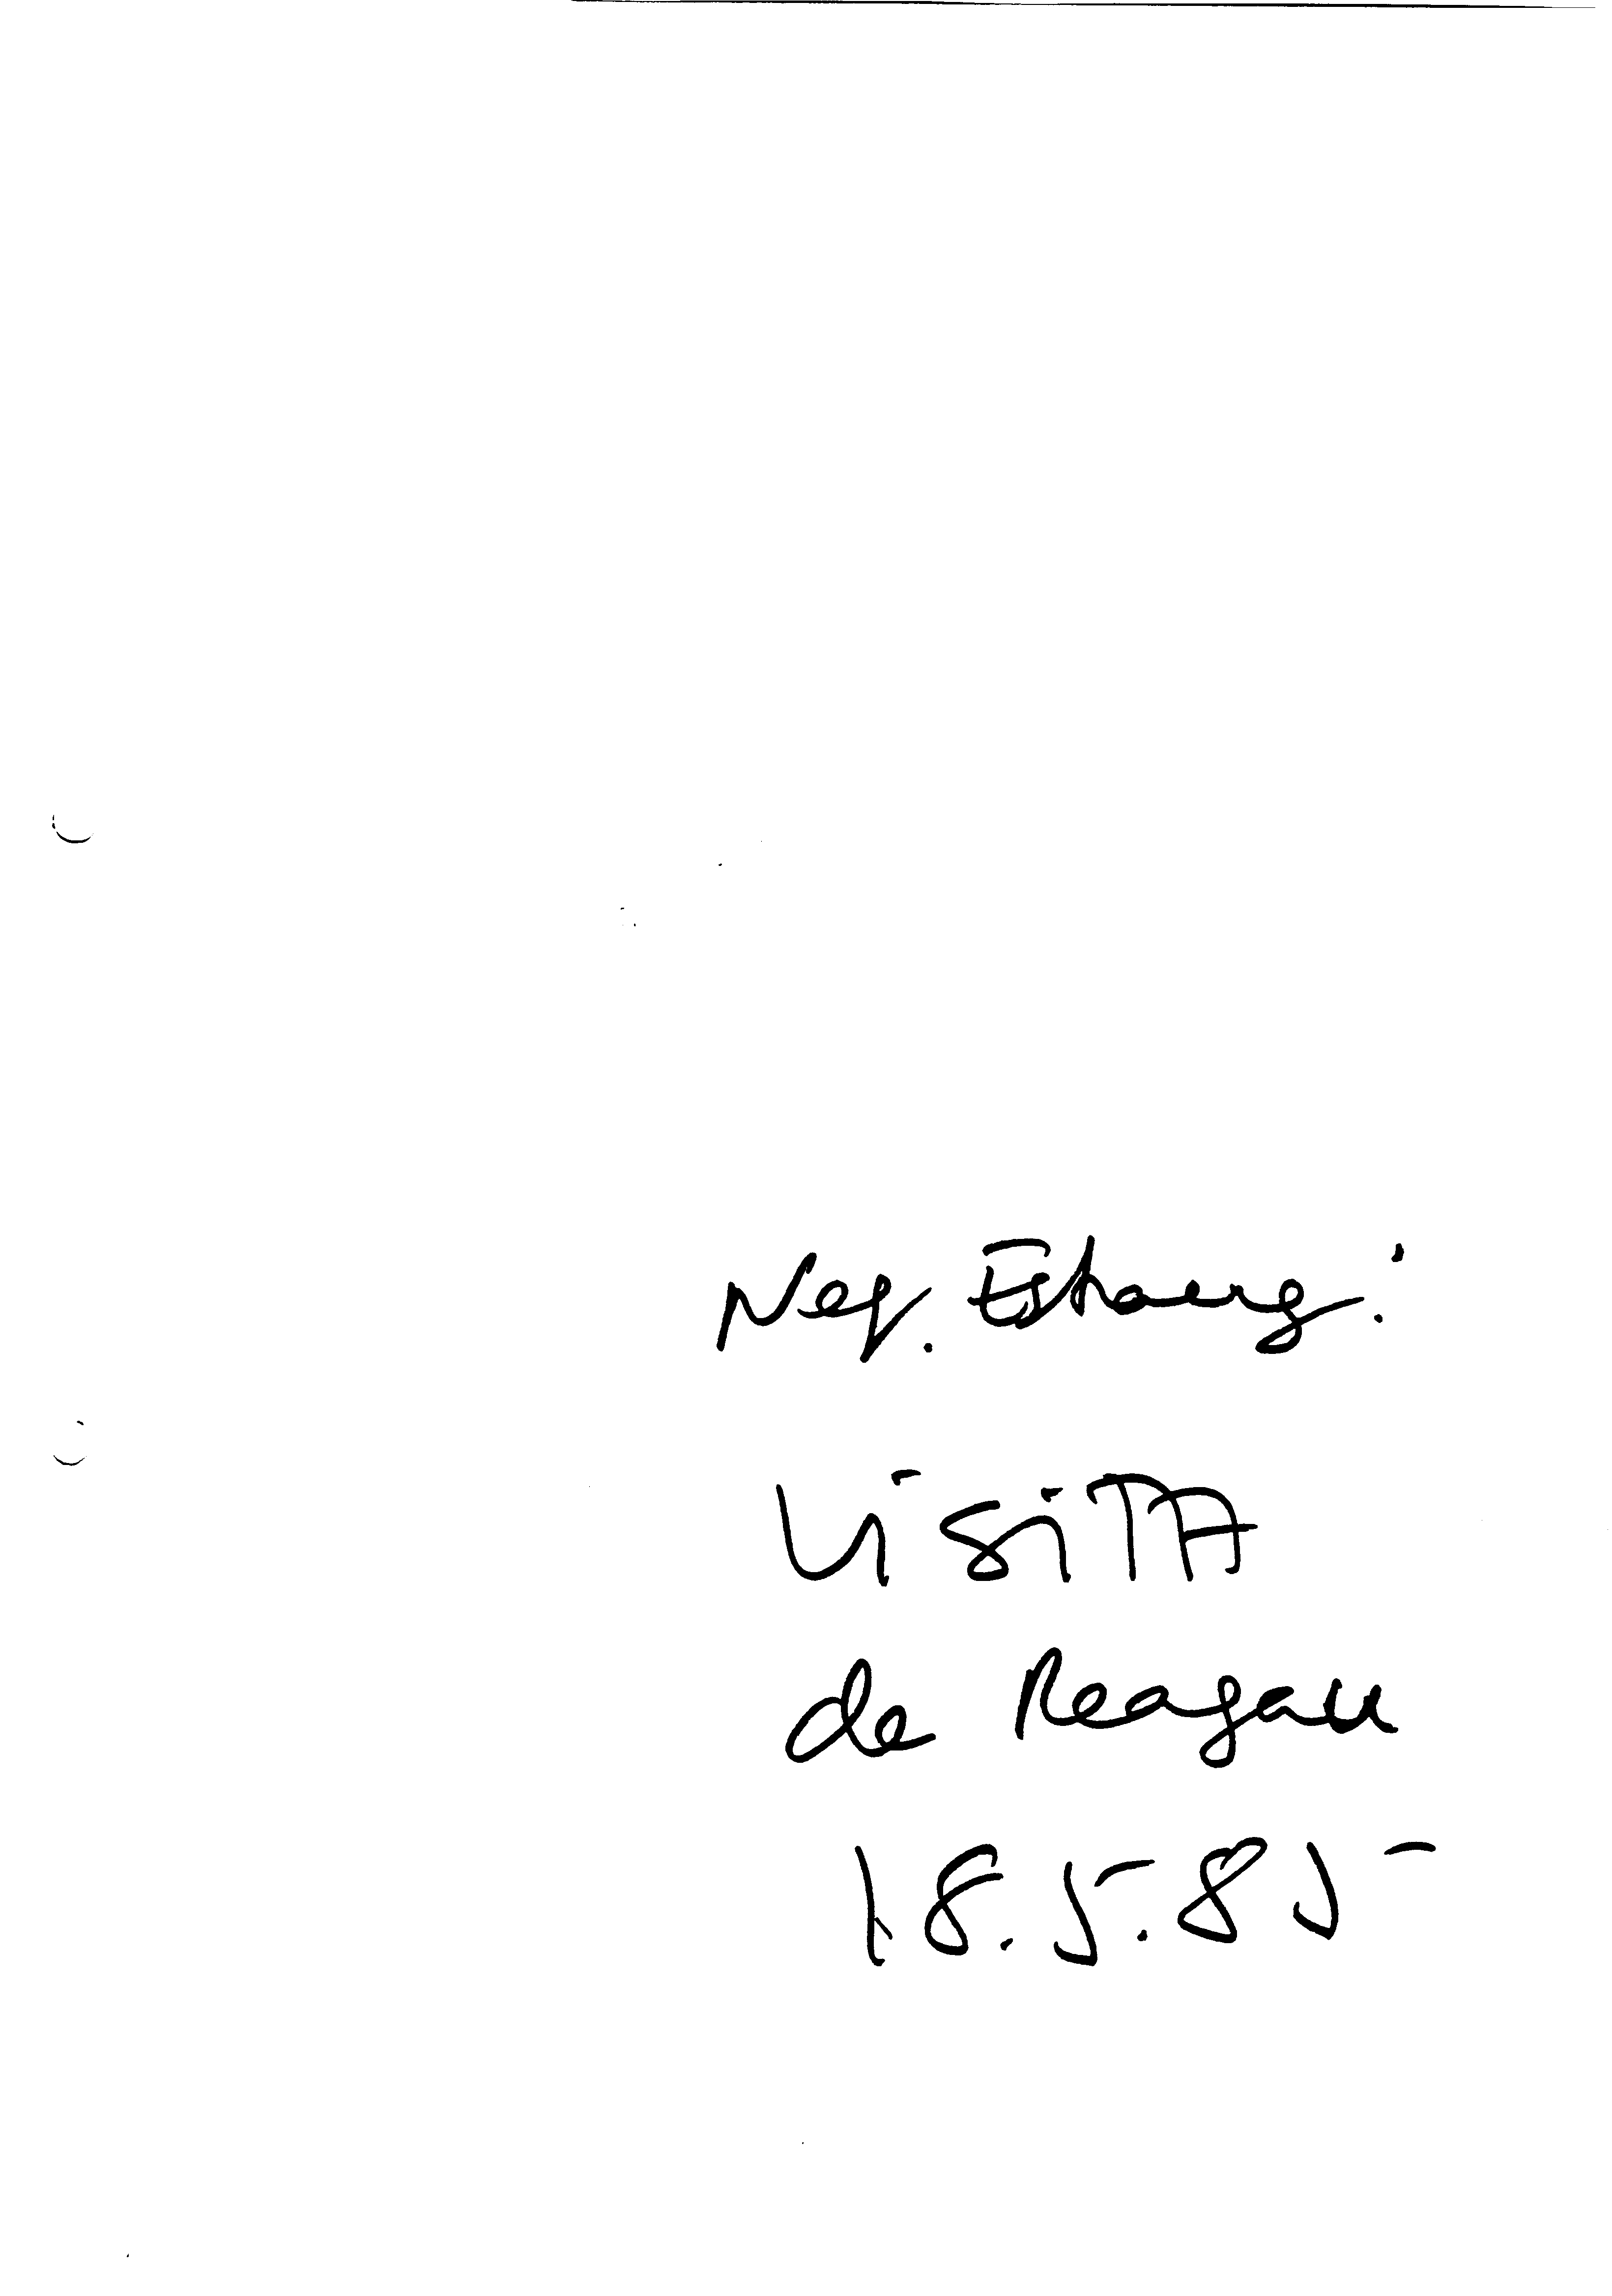 Neg. Estrang.:
ViSiTA
de Reagan
18.5.85